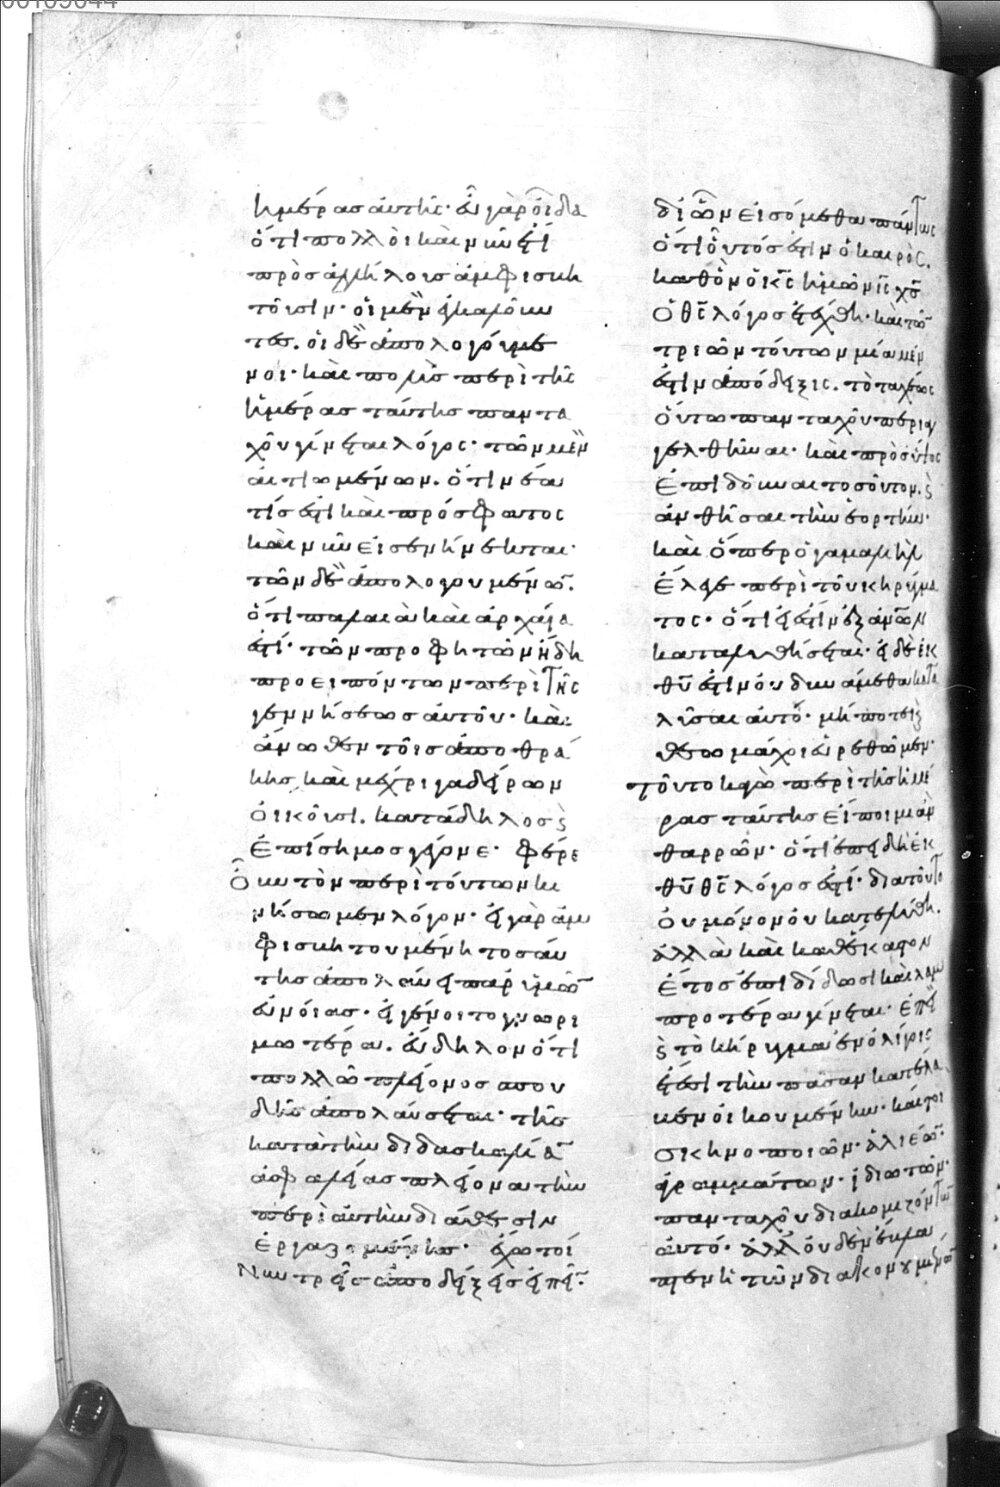 ἡμέρας αὐτῆς· εὖ γὰρ οἶδα
ὅτι πολλοὶ καὶ νῦν ἔτι
πρὸς ἀλλήλους ἀμφισβη
τοῦσιν· οἱ μὲν ἐγκαλοῦν
τες. οἱ δὲ ἀπολογούμε
νοι· καὶ πολὺς περὶ τῆς
ἡμέρας ταύτης παντα
χοῦ γίνεται λόγος· τῶν μὲν
αἰτιωμένων. ὅτι νέα
τίς ἐστι καὶ πρόσφατος
καὶ νῦν εἰσενήνεκται·
τῶν δὲ ἀπολογουμένων.
ὅτι παλαιὰ καὶ ἀρχαία
ἐστί· τῶν προφητῶν ἤδη
προειπόντων περὶ τῆς
γεννήσεως αὐτοῦ· καὶ
ἄνωθεν τοῖς ἀπὸ θρά
κης καὶ μέχρι γαδείρων
οἰκοῦσι. κατάδηλος καὶ
ἐπίσημος γέγονε· φέρε
οὖν τὸν περὶ τούτων κι
νήσωμεν λόγον· εἰ γὰρ ἀμ
φισβητουμένη τοσαύ
της ἀπολαύει παρ' ὑμῶν
εὐνοίας· εἰ γένοιτο γνωρι
μωτέρα. εὔδηλον ὅτι
πολλῷ πλείονος σπου
δῆς ἀπολαύσεται· τῆς
κατὰ τὴν διδασκαλίαν
ἀσφαλείας πλείονα τὴν
περὶ αὐτὴν διάθεσιν
ἐργαζομένης. ἔχω τοί
νυν τρεῖς ἀποδείξεις εἰπεῖν·
δι' ὧν εἰσόμεθα πάντως
ὅτι οὗτός ἐστιν ὁ καιρὸς.
καθ' ὃν ὁ κς ἡμῶν ις χς
ὁ θς λόγος ἐτέχθη· καὶ τῶν
τριῶν τούτων μία μέν
ἐστιν ἀπόδειξις. τὸ ταχέως
οὕτω πανταχοῦ περιαγ
γελθῆναι· καὶ πρὸς ὕψος
ἐπιδοῦναι τοσοῦτον. καὶ
ἀνθῆσαι τὴν ἑορτήν·
καὶ ὅπερ ὁ γαμαλιὴλ
ἔλεγε περὶ τοῦ κηρύγμα
τος· ὅτι εἰ ἔστιν ἐξ ἀνων
καταλυθήσεται· εἰ δὲ ἐκ
θυ ἐστιν οὐ δυνάμεθα κατα
λῦσαι αὐτό· μή ποτε καὶ
θεομάχοι εὑρεθῶμεν·
τοῦτο κἀγὼ περὶ τῆς ἡμέ
ρας ταύτης εἴποιμι ἂν
θαρρῶν· ὅτι ἐπειδὴ ἐκ
θυ θς λόγος ἐστί· διὰ τοῦτο
οὐ μόνον οὐ κατελύθη.
ἀλλὰ καὶ καθ' ἕκαστον
ἔτος ἐπιδίδωσι καὶ λαμ
προτέρα γίνεται· ἐπεὶ
καὶ τὸ κήρυγμα ἐν ὀλίγοις
ἔτεσι τὴν πᾶσαν κατέλα
βεν οἰκουμένην· καίτοι
σκηνοποιῶν· ἁλιέων·
ἀγραμμάτων· ἰδιωτῶν·
πανταχοῦ διακομιζόντων
αὐτό· ἀλλ' οὐδὲν ἔβλα
πτεν ἡ τῶν διακονουμένων